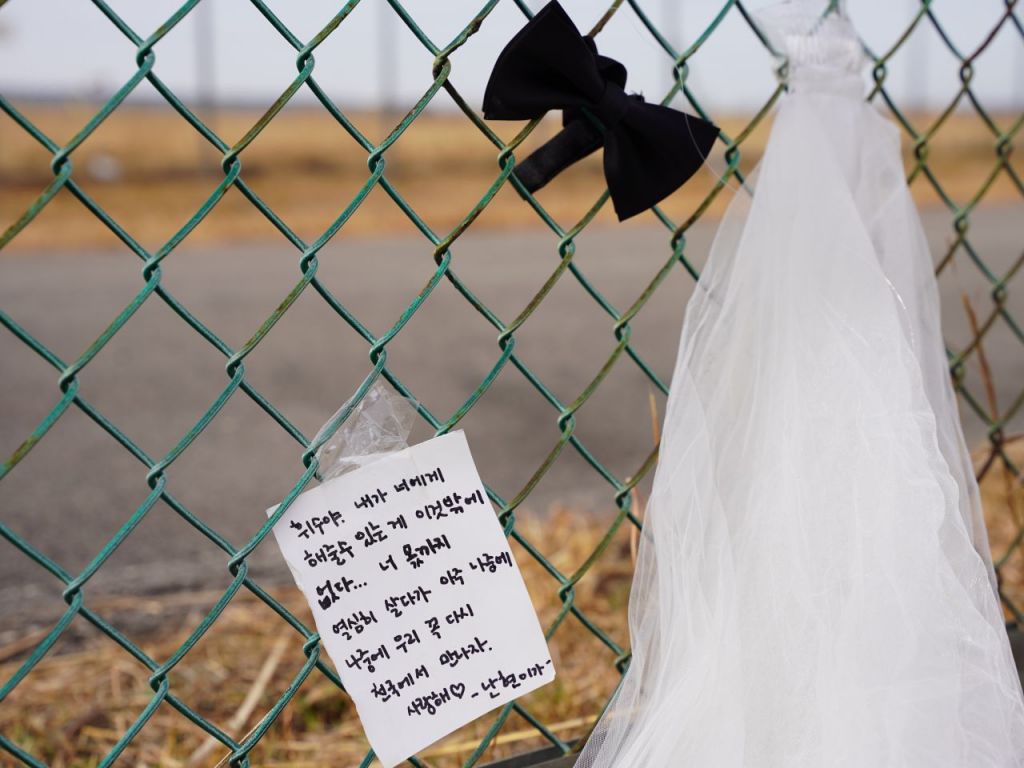 휘수야. 내가 너에게
해줄수 있는 게 이것밖에
없다... 너 몫까지
열심히 살다가 아주 나중에
나중에 우리 꼭 다시
천국에서 만나자.
사랑해♡ -난현이가-